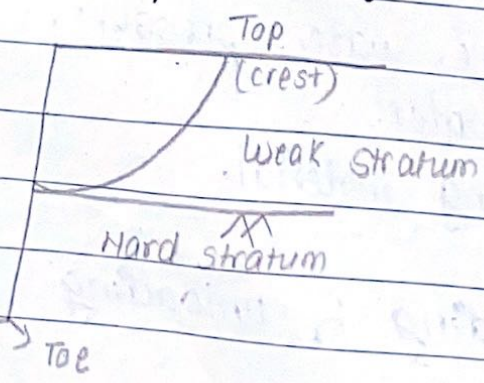 Top
(crest)
Weak Stratum
Hard stratum
Toe